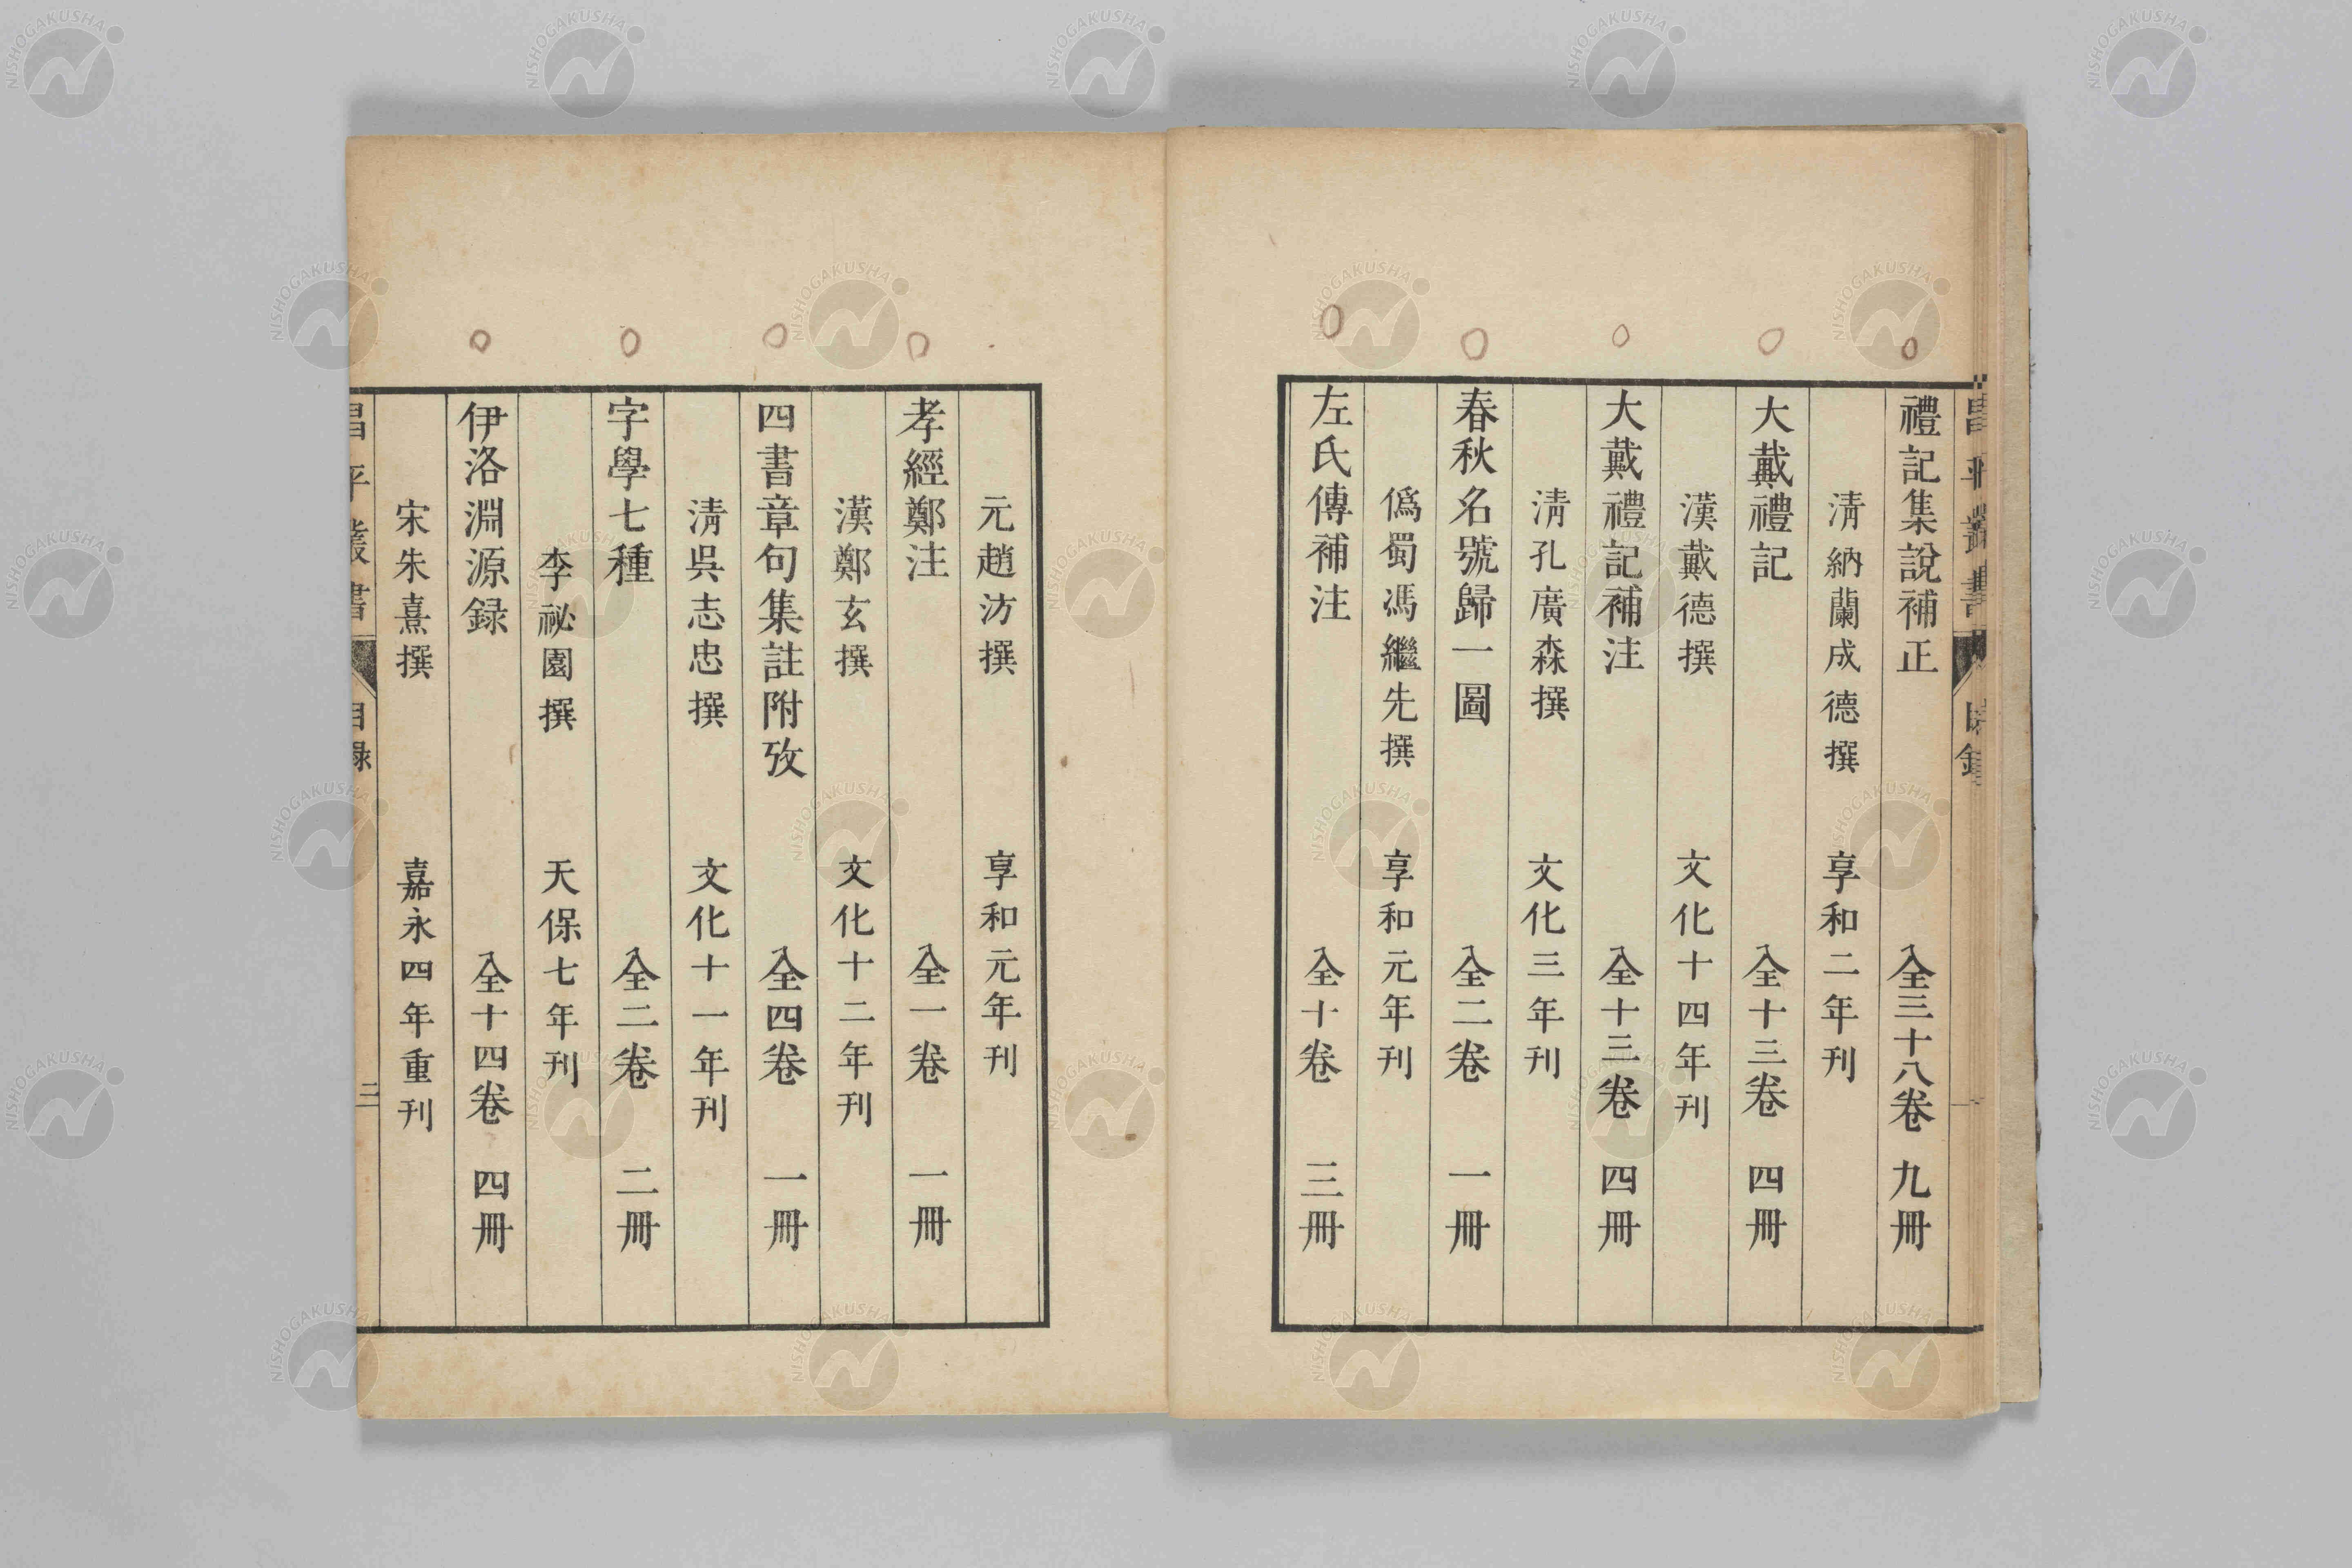 禮記集說補正 全三十八卷 九冊
清納蘭成德撰 享和二年刊
大戴禮記 全十三卷 四冊
漢戴德撰 文化十四年刊
大戴禮記補注 全十三卷 四冊
清孔廣森撰 文化三年刊
春秋名號歸一圖 全二卷 一冊
僞蜀馮繼先撰 享和元年刊
左氏傳補注 全十卷 三冊
元趙汸撰 享和元年刊
孝經鄭注 全一卷 一冊
漢鄭玄撰 文化十二年刊
四書章句集註附攷 全四卷 一冊
清吳志忠撰 文化十一年刊
字學七種 全二卷 二冊
李祕園撰 天保七年刊
伊洛淵源録 全十四卷 四冊
宋朱熹撰 嘉永四年重刊
昌平叢書 目録 三
NISHOGAKUSHA